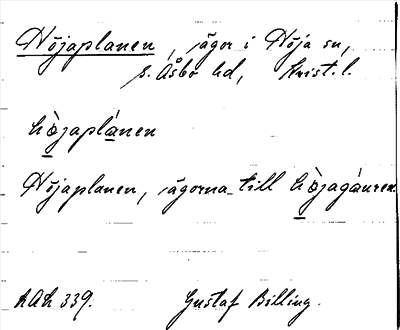 Höjaplanen, ägor i Höja sn,
s. Åsbo hd, Krist. l.
hö̀japlánen
Höjaplanen, ägorna till hö̀jagáuren
Gustaf Billing.